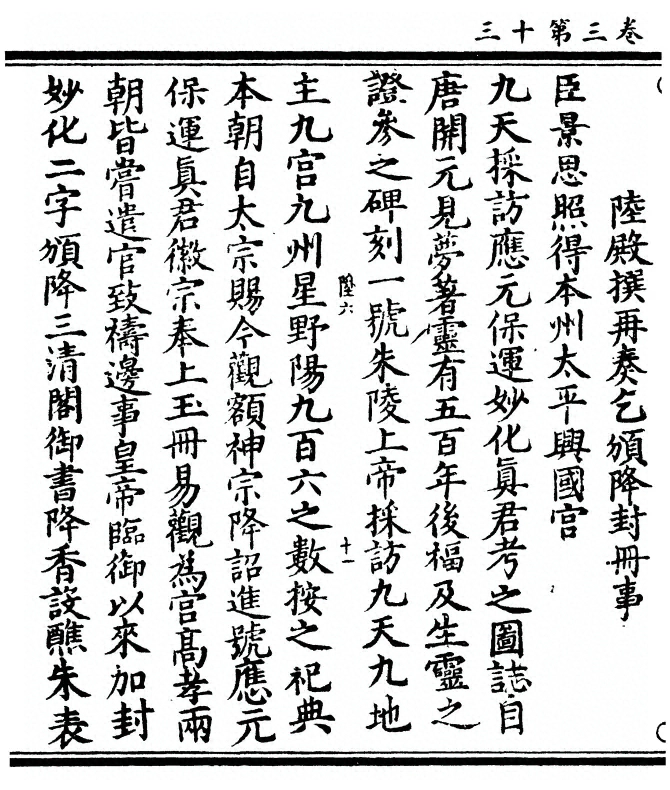 三十第三卷
陸殿撰再奏乞頒降封冊事
臣景思照得本州太平興國宮
九天採訪應元保運妙化眞君考之圖誌自
唐開元見夢著靈有五百年後福及生靈之
證參之碑刻一號朱陵上帝採訪九天九地
陸六
十一
主九宮九州星野陽九百六之數按之祀典
本朝自太宗賜今觀額神宗降詔進號應元
保運眞君徽宗奉上玉冊易觀爲宮高孝兩
朝皆嘗遣官致禱邊事皇帝臨御以來加封
妙化二字頒降三清閣御書降香設醮朱表